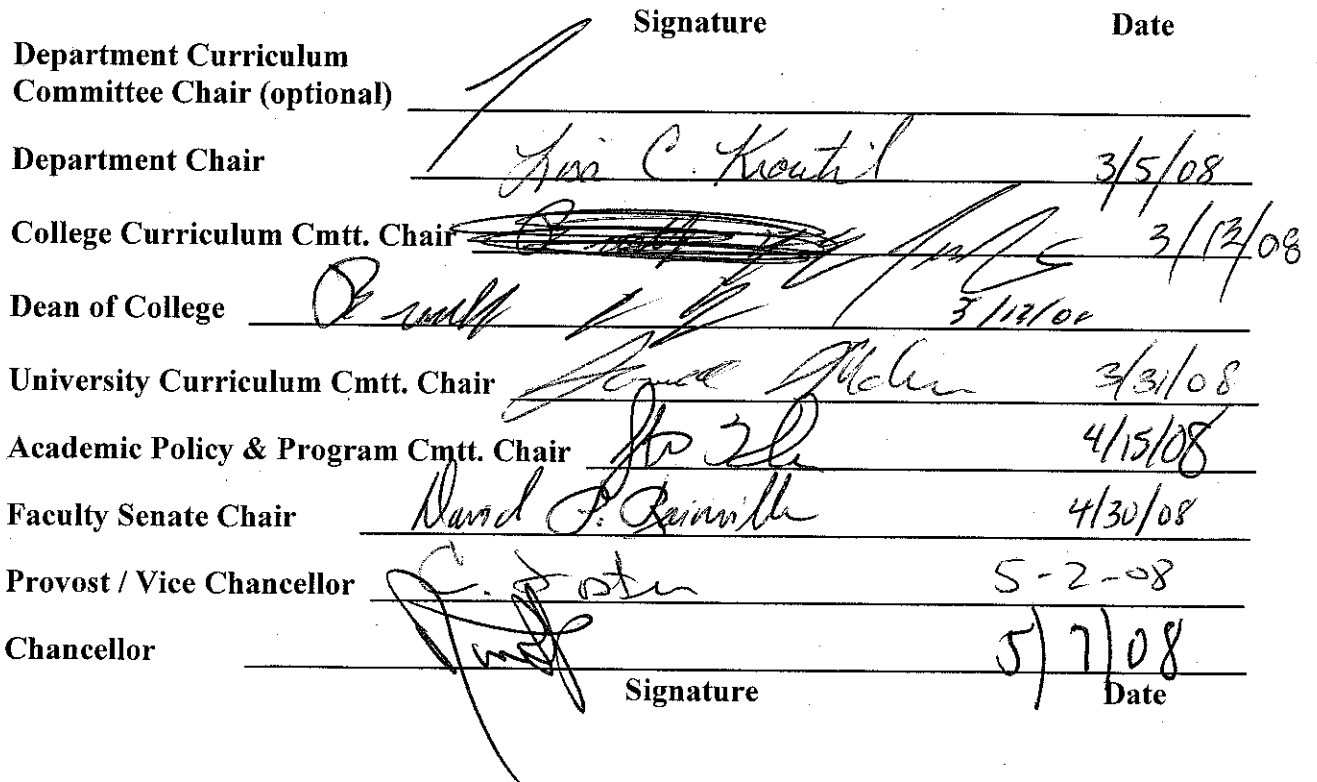 Signature Date
Department Curriculum
Committee Chair (optional)
Department Chair Lisa C. Kroutil 3/5/08
College Curriculum Cmtt. Chair 3/12/08
Dean of College 3/12/08
University Curriculum Cmtt. Chair 3/31/08
Academic Policy & Program Cmtt. Chair 4/15/08
Faculty Senate Chair David P. Rainville 4/30/08
Provost / Vice Chancellor C. Foster 5-2-08
Chancellor 5/7/08
Signature Date